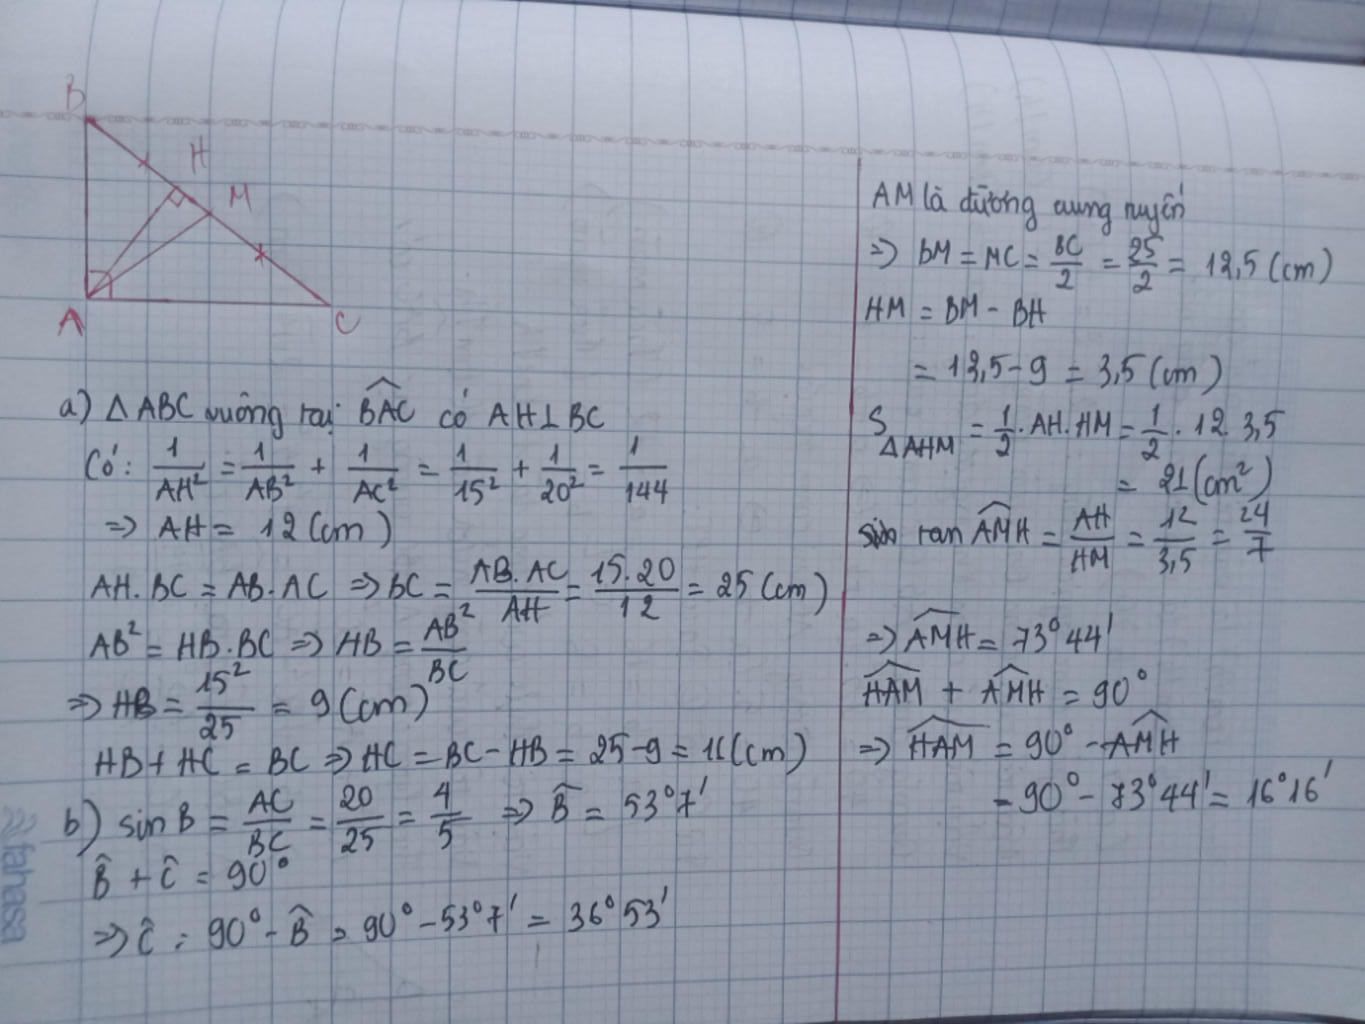 B
H
M
A
C
a) ΔABC vuông tại BAC có AH⊥BC
Có: 1/AH² = 1/AB² + 1/AC² = 1/15² + 1/20² = 1/144
⇒ AH = 12 (cm)
AH.BC = AB.AC ⇒ BC = AB.AC/AH = 15.20/12 = 25 (cm)
AB² = HB.BC ⇒ HB = AB²/BC
⇒ HB = 15²/25 = 9 (cm)
HB + HC = BC ⇒ HC = BC - HB = 25 - 9 = 16 (cm)
b) sin B = AC/BC = 20/25 = 4/5 ⇒ B̂ = 53°7'
B̂ + Ĉ = 90°
⇒ Ĉ = 90° - B̂ = 90° - 53°7' = 36°53'
AM là đường trung tuyến
⇒ BM = MC = BC/2 = 25/2 = 12,5 (cm)
HM = BM - BH
= 12,5 - 9 = 3,5 (cm)
S ΔAHM = 1/2 . AH.HM = 1/2 . 12 3,5
= 21 (cm²)
tan AMH = AH/HM = 12/3,5 = 24/7
⇒ AMH = 73°44'
HAM + AMH = 90°
⇒ HAM = 90° - AMH
= 90° - 73°44' = 16°16'
fahasa